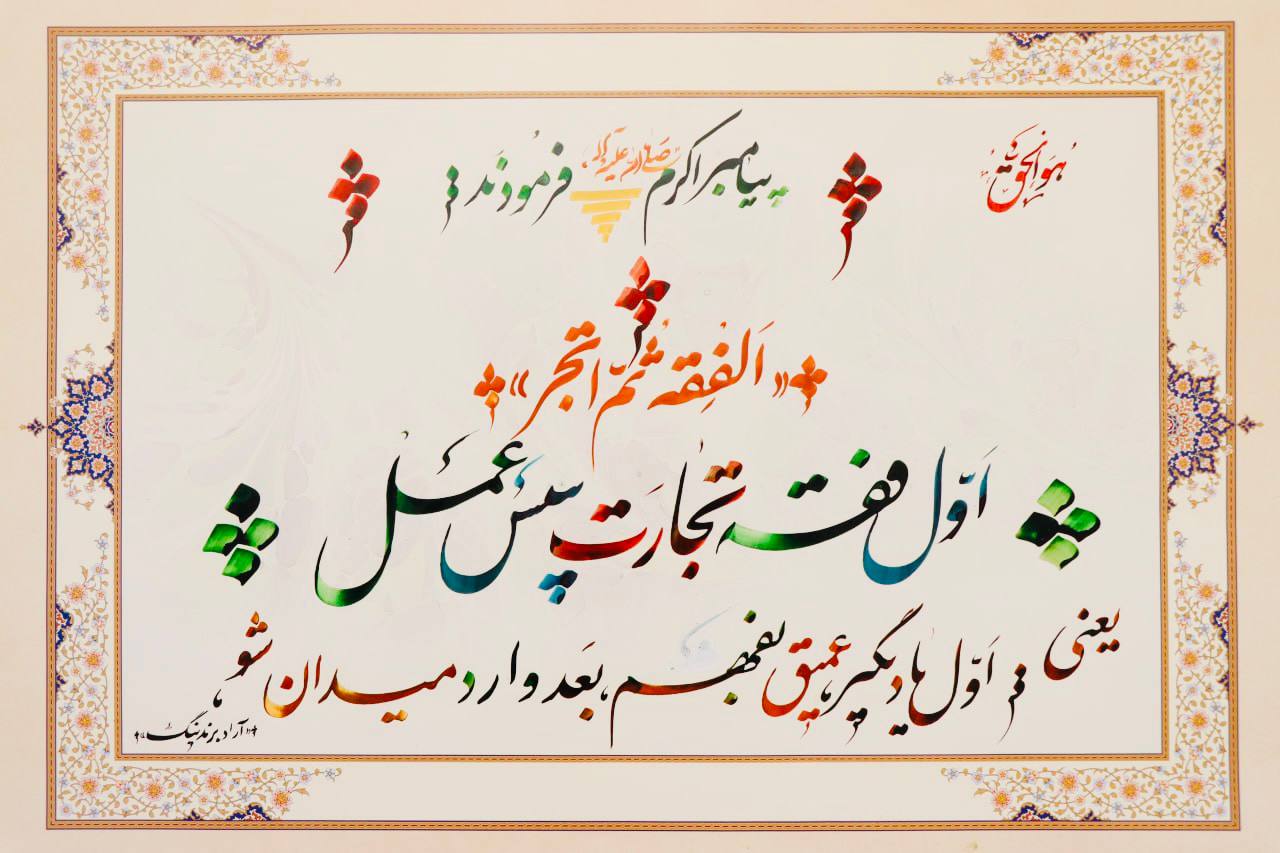 هو الحق
پیامبر اکرم صلی الله علیه و آله فرمودند:
«اَلفُقِقه ثُمّ اتجر»
اَوّل فقه تجارَت سپس عمَل
یعنی: اَوّل یاد بگیر، عمیق بفهم، بَعد وارد میدان شو،
«آراد برندینگ»